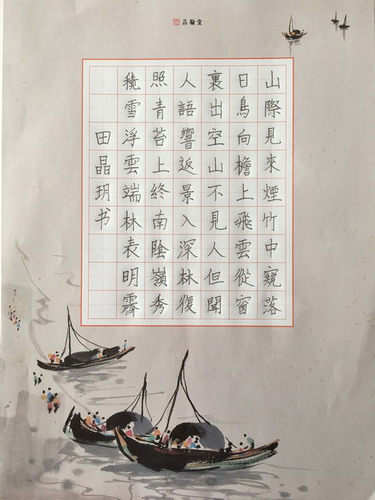 品翰堂
山際見來煙竹中窺落
日鳥向檐上飛雲從窗
裏出空山不見人但聞
人語響返景入深林復
照青苔上終南陰嶺秀
積雪浮雲端林表明霽
田晶玥书